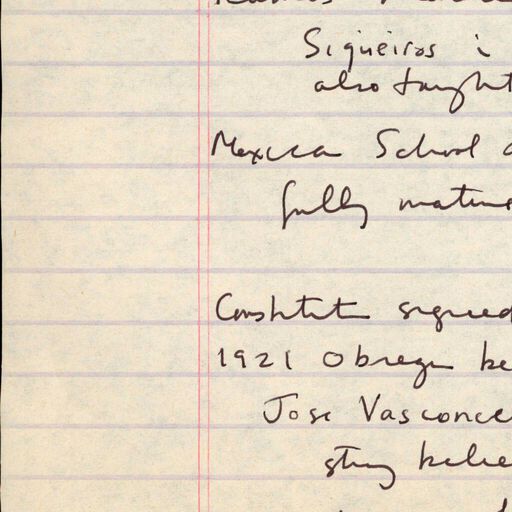 Siqueiros i
also taught
Mexican School o
fully mature
Constitut signed
1921 Obregn be
Jose Vasconce
strng belie